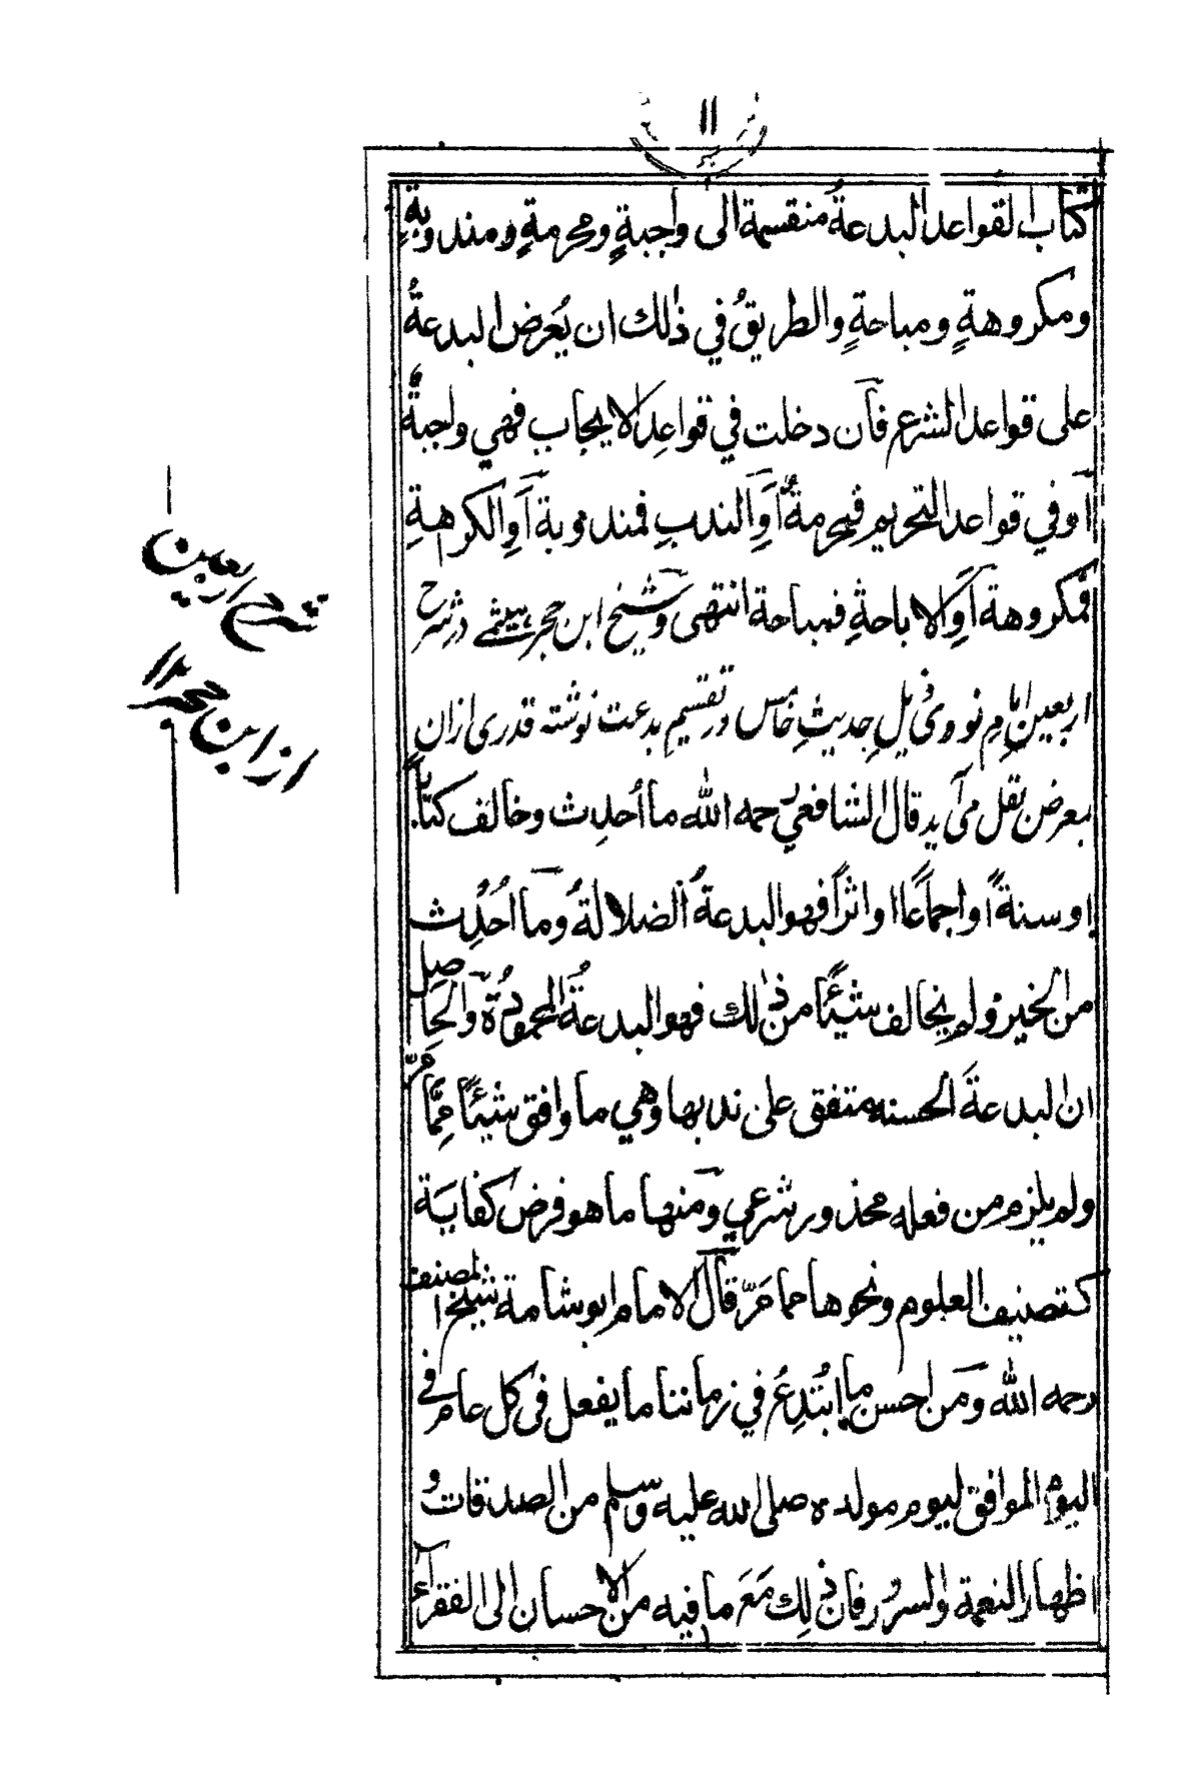 ۱۱
كتاب القواعد البدعةُ منقسمة الى واجبةٍ ومحرمةٍ ومندوبةٍ
ومكروهةٍ ومباحةٍ والطريقُ في ذٰلك ان يُعرض البدعةُ
على قواعد الشرع فآن دخلت في قواعد الايجاب فهي واجبةٌ
آو في قواعد التحريم فمحرمةٌ آوِ الندبِ فمندوبة آوِ الكرهةِ
فمكروهة آوِ الاباحةِ فمباحة انتهى وشيخ ابن حجر ہيثمے در شرح
اربعين امام نووى ذيلِ حديثِ خامس در تقسيم بدعت نوشته قدرى ازان
بعرض نقل مى آيد قال الشافعي رحمه الله ما اُحدِث وخالف كتاباً
او سنةً او اجماعًا او اثراً فهو البدعةُ الضلالةُ وما اُحدِث
من الخير ولم يخالف شيئًا من ذٰلك فهو البدعةُ المحمودةُ والحاصل
ان البدعةَ الحسنه متفق على ندبها وهي ما وافق شيئًا مِمَّا مَرَّ
ولم يلزم من فعله محذور شرعي ومنها ما هو فرض كفايَة
كتصنيف العلوم ونحوها مما مَرّ قال الامام ابو شامة شيخ المصنف
رحمه الله ومن احسن ما ابتُدِعُ في زماننا ما يفعل فى كل عام فى
اليوم الموافق ليوم مولده صلى الله عليه وسلم من الصدقات و
اظهار النعمة والسرور فان ذٰلك مَعَ ما فيه من الاحسان الى الفقرآء
شرح اربعين
از ابن حجر ۱۲